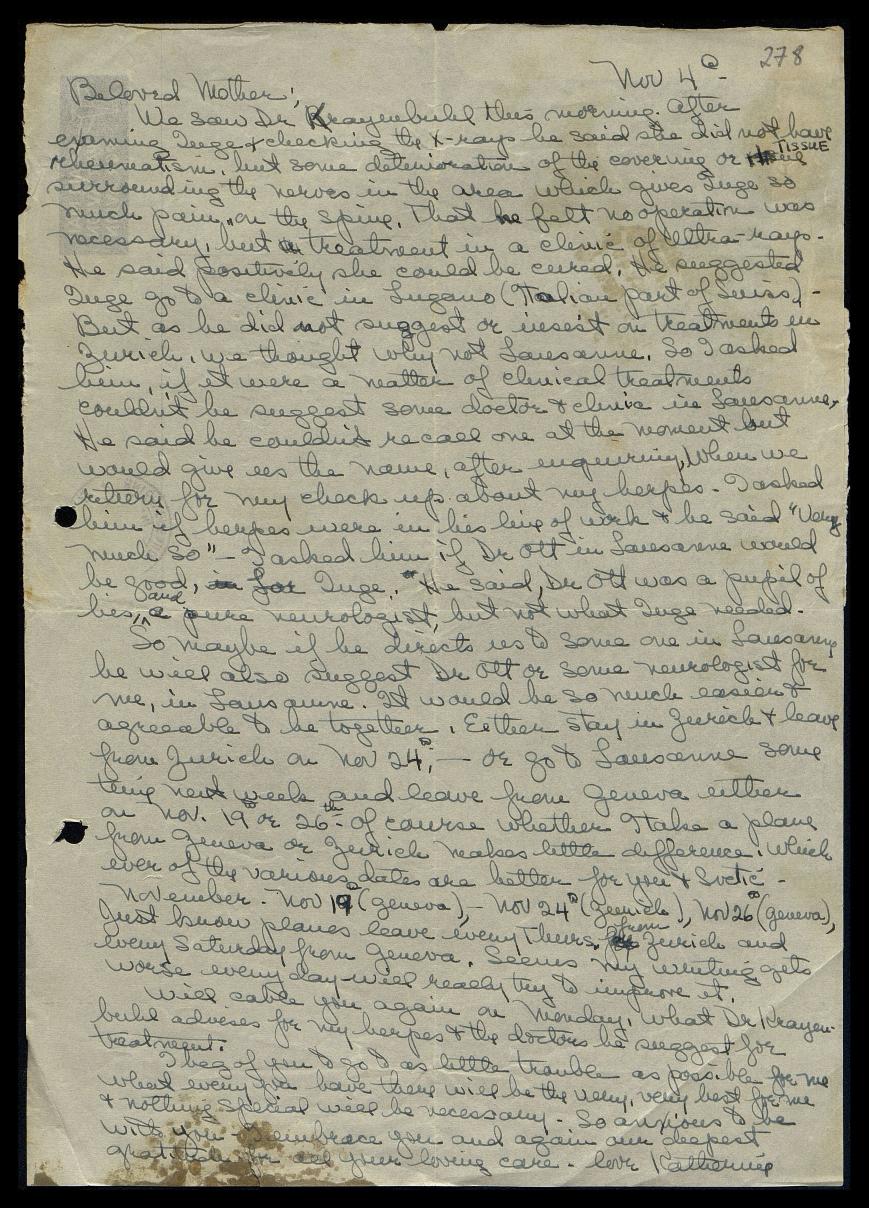 278
Nov 4th -
Beloved Mother;
We saw Dr Krayenbuhl this morning. After
examing Inge & checking the X-rays he said she did not have
rheumatism, but some deterioration of the covering or TISSUE
surrounding the nerves in the area which gives Inge so
much pain, on the spine. That he felt no operation was
necessary, but treatment in a clinic of Ultra-rays -
He said positively she could be cured. He suggested
Inge go to a clinic in Lugano (Italian part of Suiss) -
But as he did not suggest or insist on treatments in
Zurich, we thought why not Lausanne. So I asked
him, if it were a matter of clinical treatments
couldn't he suggest some doctor & clinic in Lausanne,
He said he couldn't recall one at the moment but
would give us the name, after enquiring, when we
return for my check up about my herpes - I asked
him if herpes were in his line of work & he said "Very
much so" - I asked him if Dr Ott in Lausanne would
be good, in for Inge. "He said, Dr Ott was a pupil of
his, and a pure neurologist, but not what Inge needed -
So maybe if he directs us to some one in Lausanne
he will also suggest Dr Ott or some neurologist for
me, in Lausanne. It would be so much easier &
agreeable to be together. Either stay in Zurich & leave
from Zurich on Nov 24th, — or go to Lausanne some
time next week and leave from Geneva either
on Nov. 19th or 26th - Of course whether I take a plane
from Geneva or Zurich makes little difference. Which
ever of the various dates are better for you & Svetic -
November - Nov 19th (Geneva), - Nov 24th (Zurich), Nov 26th (Geneva),
Just know planes leave every Thurs. from Zurich and
every Saturday from Geneva. Seems my writing gets
worse every day - will really try to improve it.
Will cable you again on Monday, what Dr Krayen-
buhl advises for my herpes & the doctors he suggest for
treatment.
I beg of you to go to as little trouble as possible for me
what every you have there will be the very, very best for me
& nothing special will be necessary - So anxious to be
with you - embrace you and again our deepest
gratitude for all your loving care - love Katherine